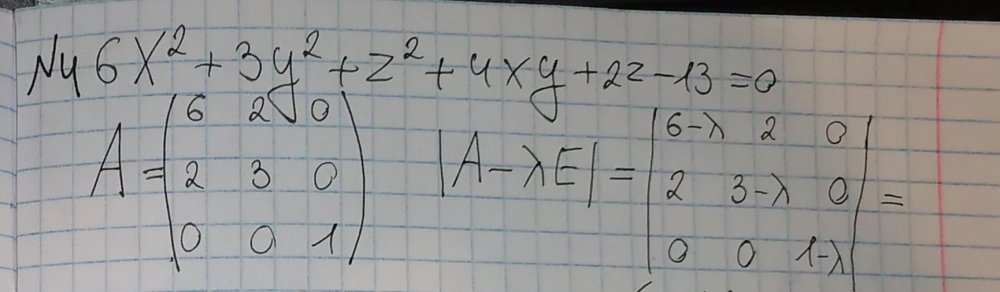 N4 6x² + 3y² + z² + 4xy + 2z - 13 = 0
A = (6 2 0
2 3 0
0 0 1) |A - λE| = |6-λ 2 0
2 3-λ 0
0 0 1-λ| =